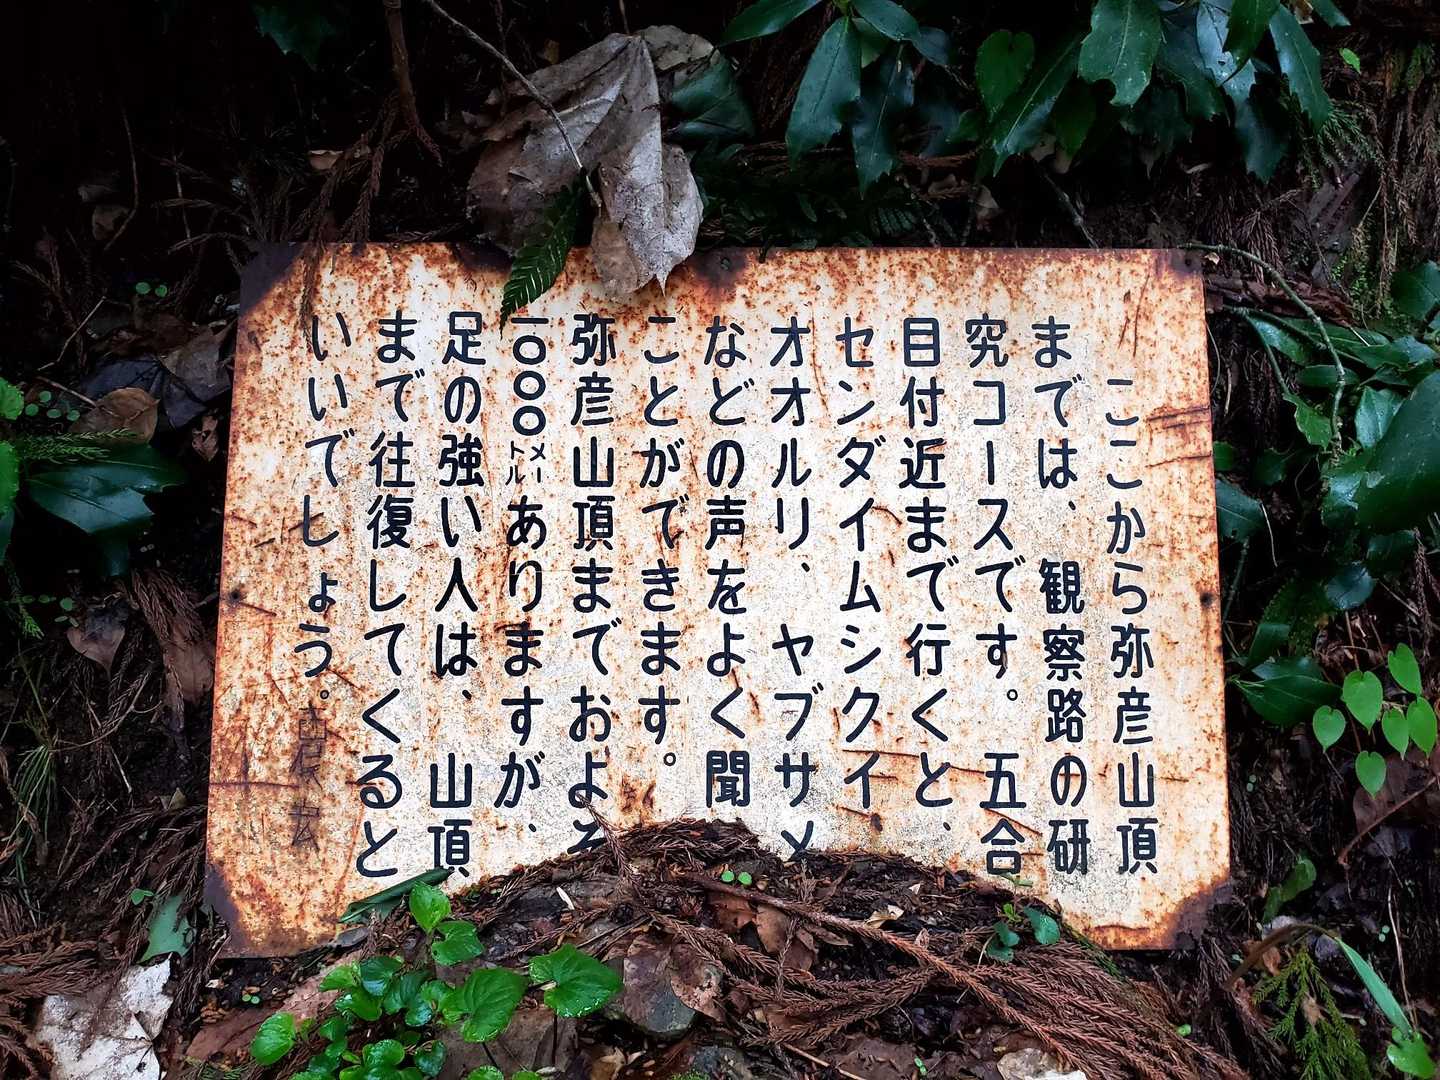 ここから弥彦山頂
までは、観察路の研
究コースです。五合
目付近まで行くと、
センダイムシクイ
オオルリ、ヤブサメ
などの声をよく聞
ことができます。
弥彦山頂までおよそ
一〇〇〇メートルありますが、
足の強い人は、山頂
まで往復してくると
いいでしょう。